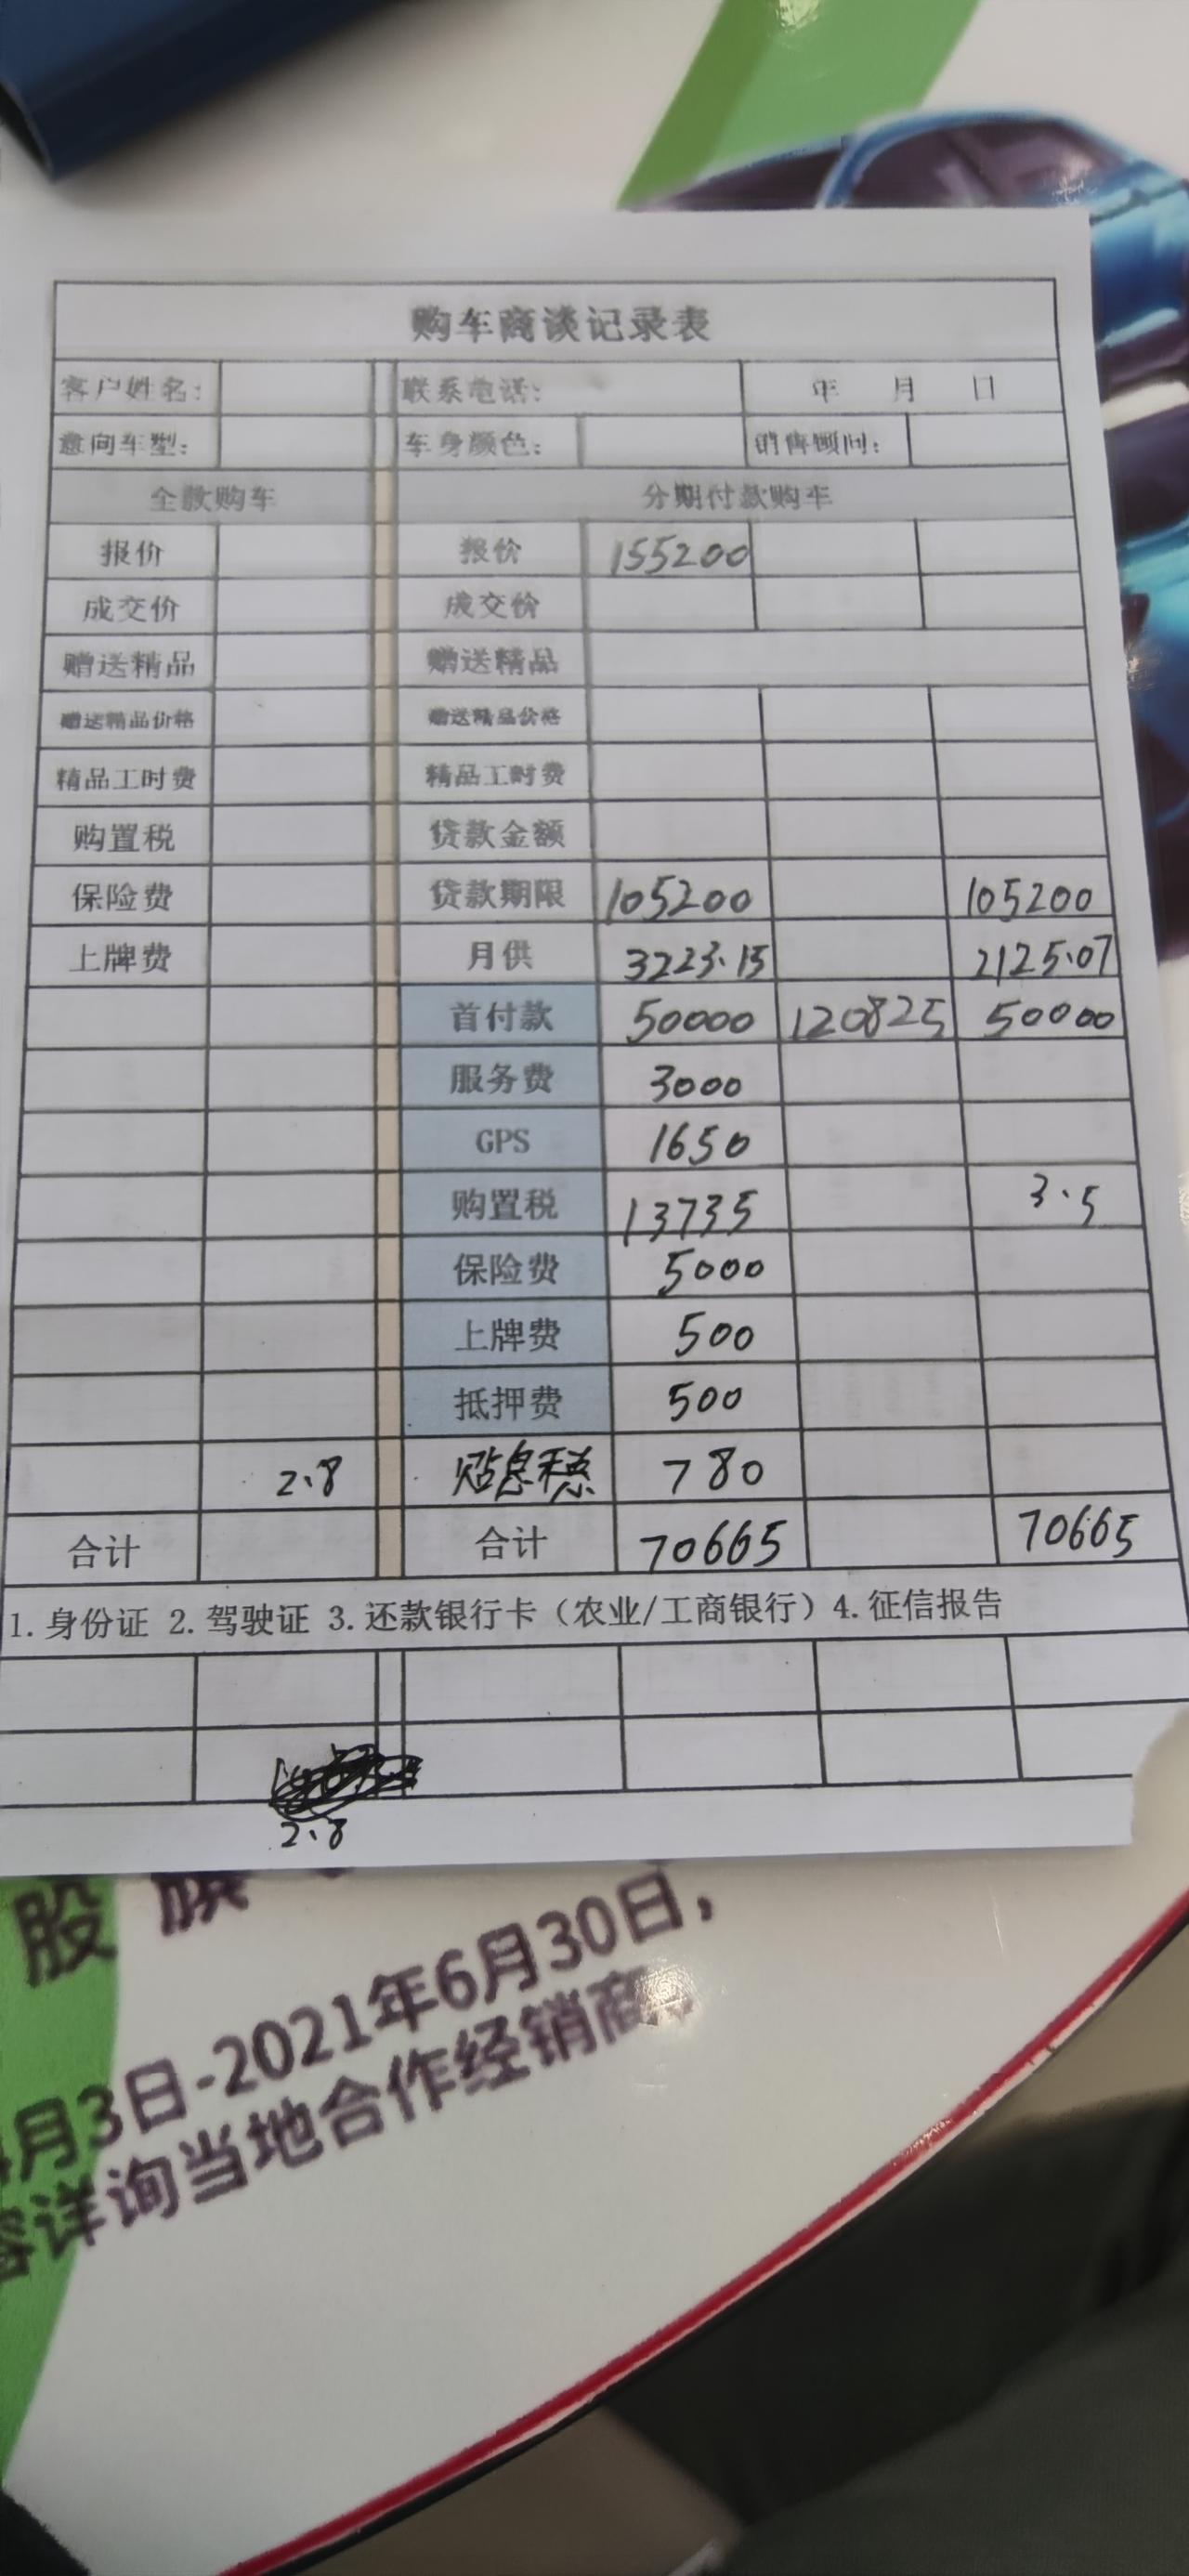 购车商谈记录表
客户姓名： 联系电话： 年 月 日
意向车型： 车身颜色： 销售顾问：
全款购车 分期付款购车
报价 报价 155200
成交价 成交价
赠送精品 赠送精品
赠送精品价格 赠送精品价格
精品工时费 精品工时费
购置税 贷款金额
保险费 贷款期限 105200 105200
上牌费 月供 3223.15 2125.07
首付款 50000 120825 50000
服务费 3000
GPS 1650
购置税 13735 3.5
保险费 5000
上牌费 500
抵押费 500
2.8 贴息 780
合计 合计 70665 70665
1.身份证 2.驾驶证 3.还款银行卡（农业/工商银行）4.征信报告
2.8
股
月3日-2021年6月30日，
详询当地合作经销商